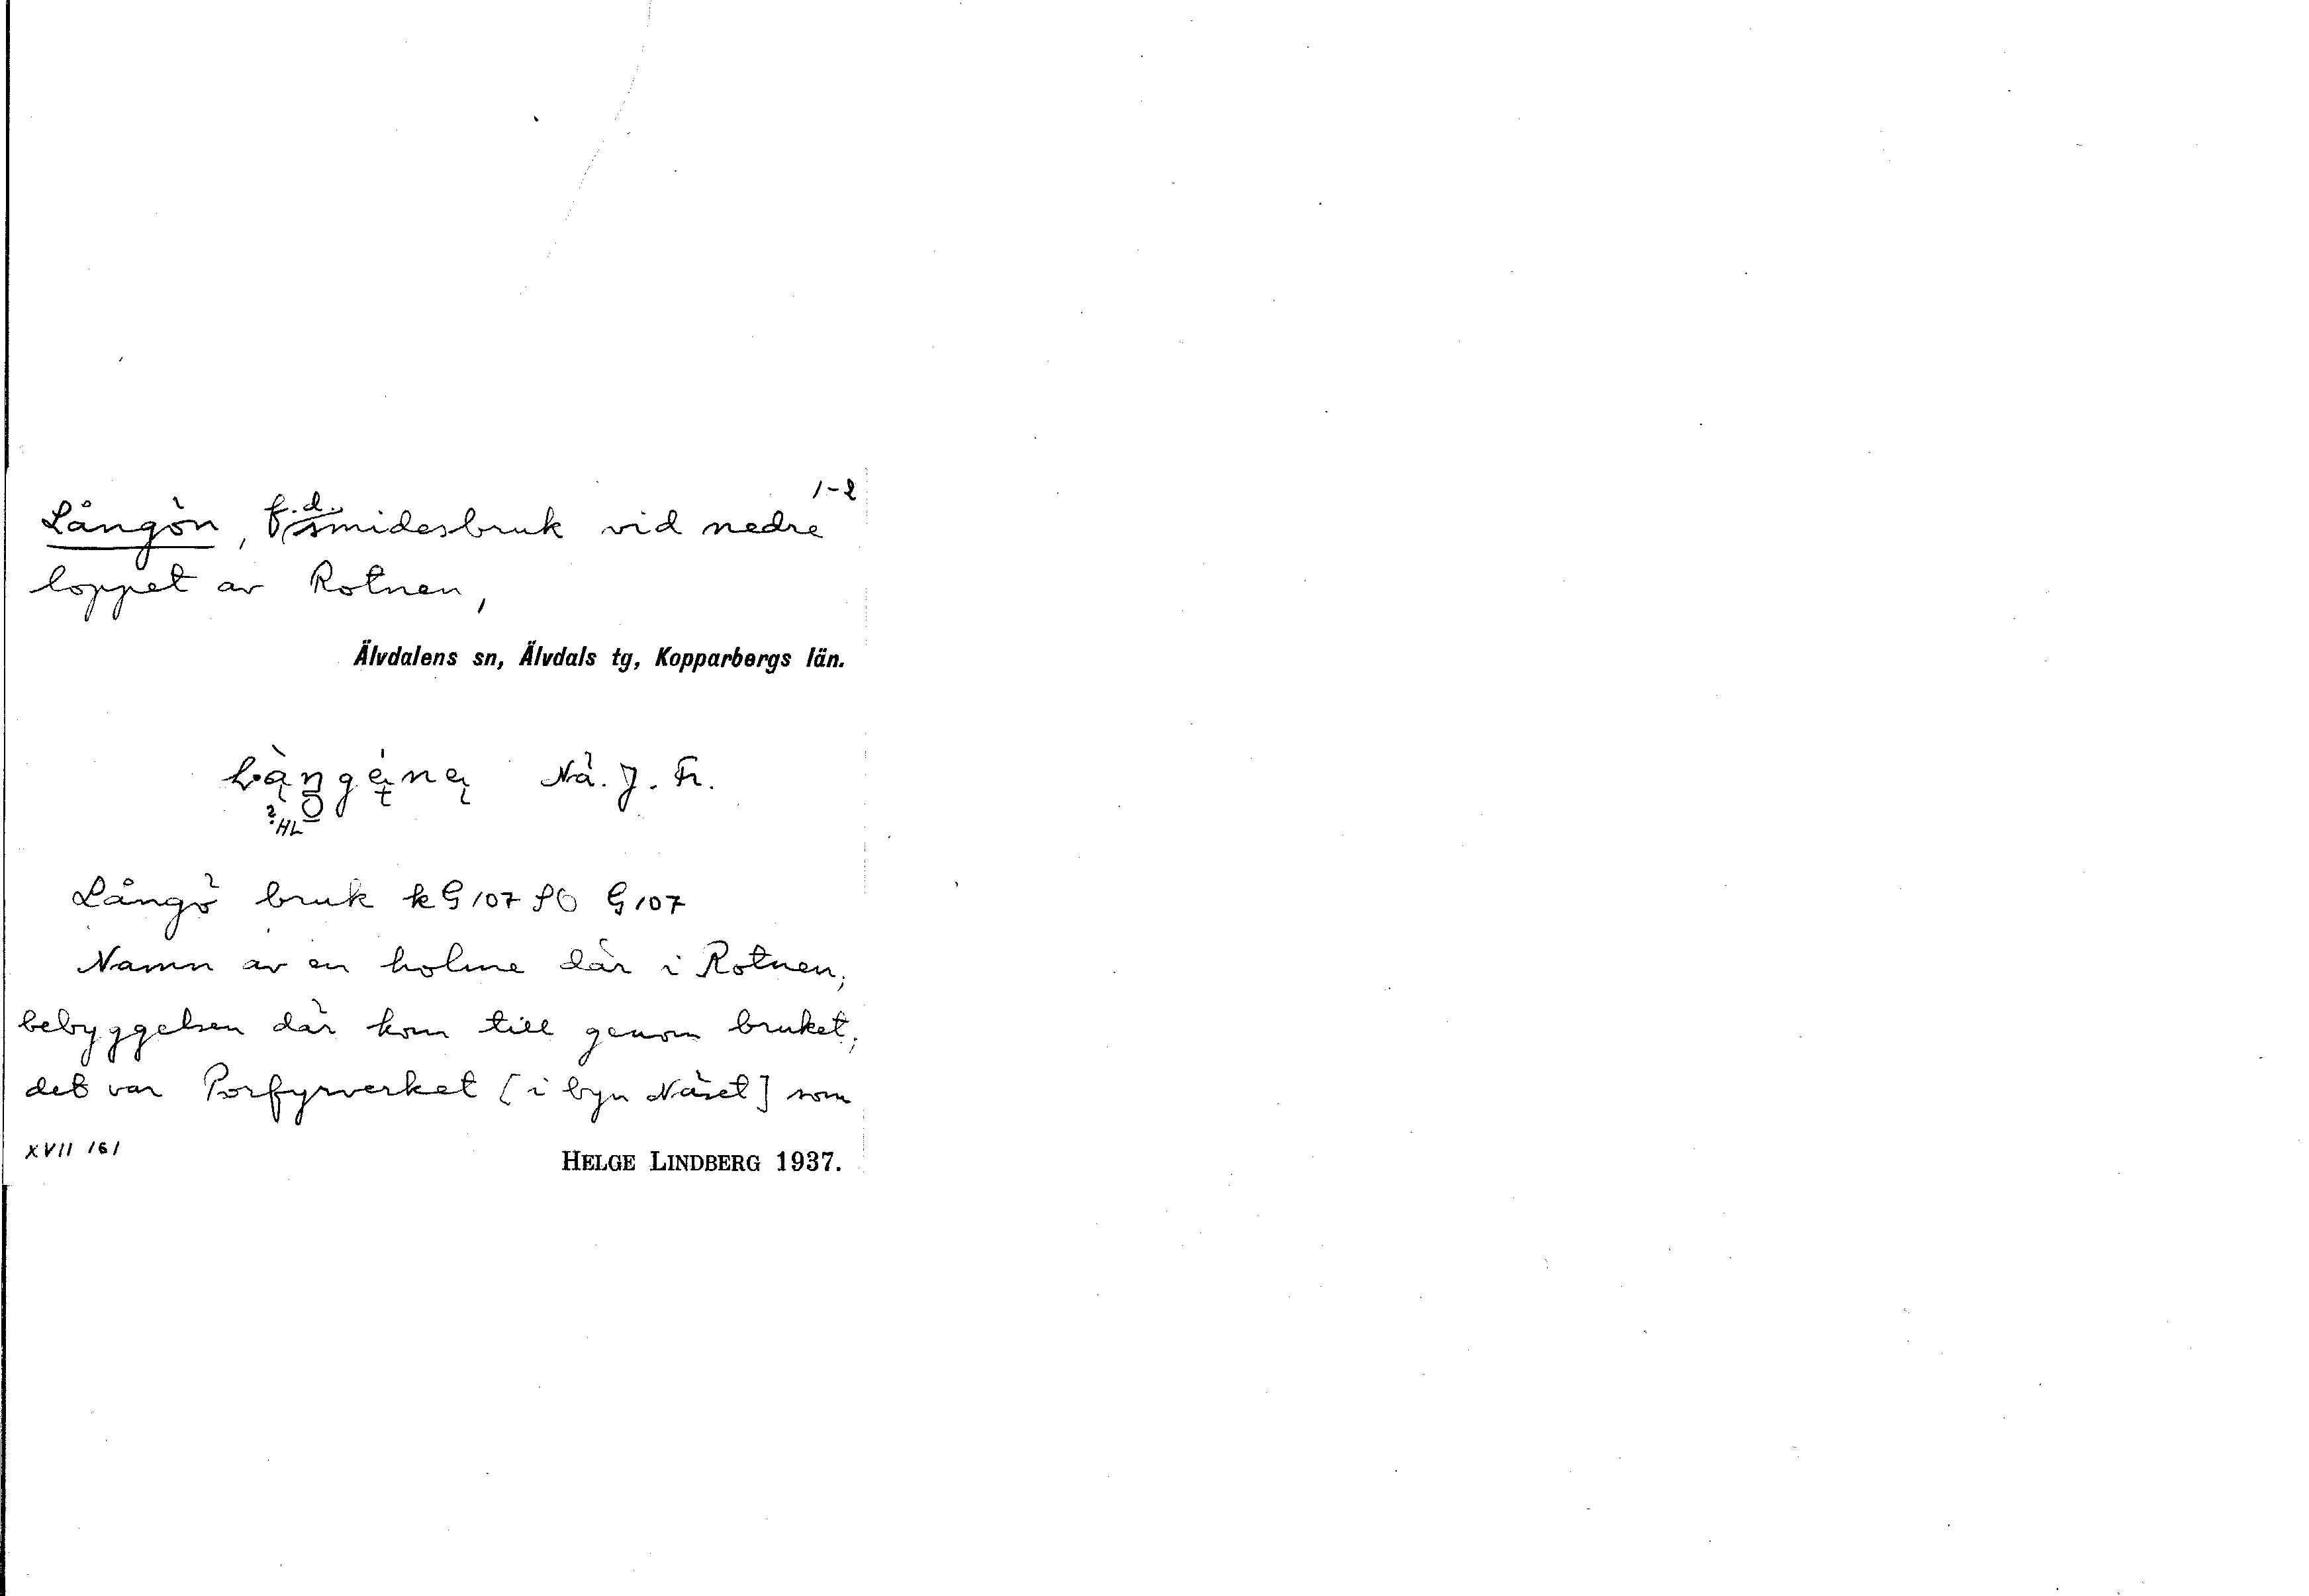 1-2
Långön, f.d. smidesbruk vid nedre
loppet av Rotnen,
Älvdalens sn, Älvdals tg, Kopparbergs län.
Nä. J. Fr.
? HL
Långö bruk kG 107 G 107
Namn av en holme där i Rotnen;
bebyggelsen där kom till genom bruket;
det var Porfyrverket [i byn Näset] som
XVII 161
HELGE LINDBERG 1937.